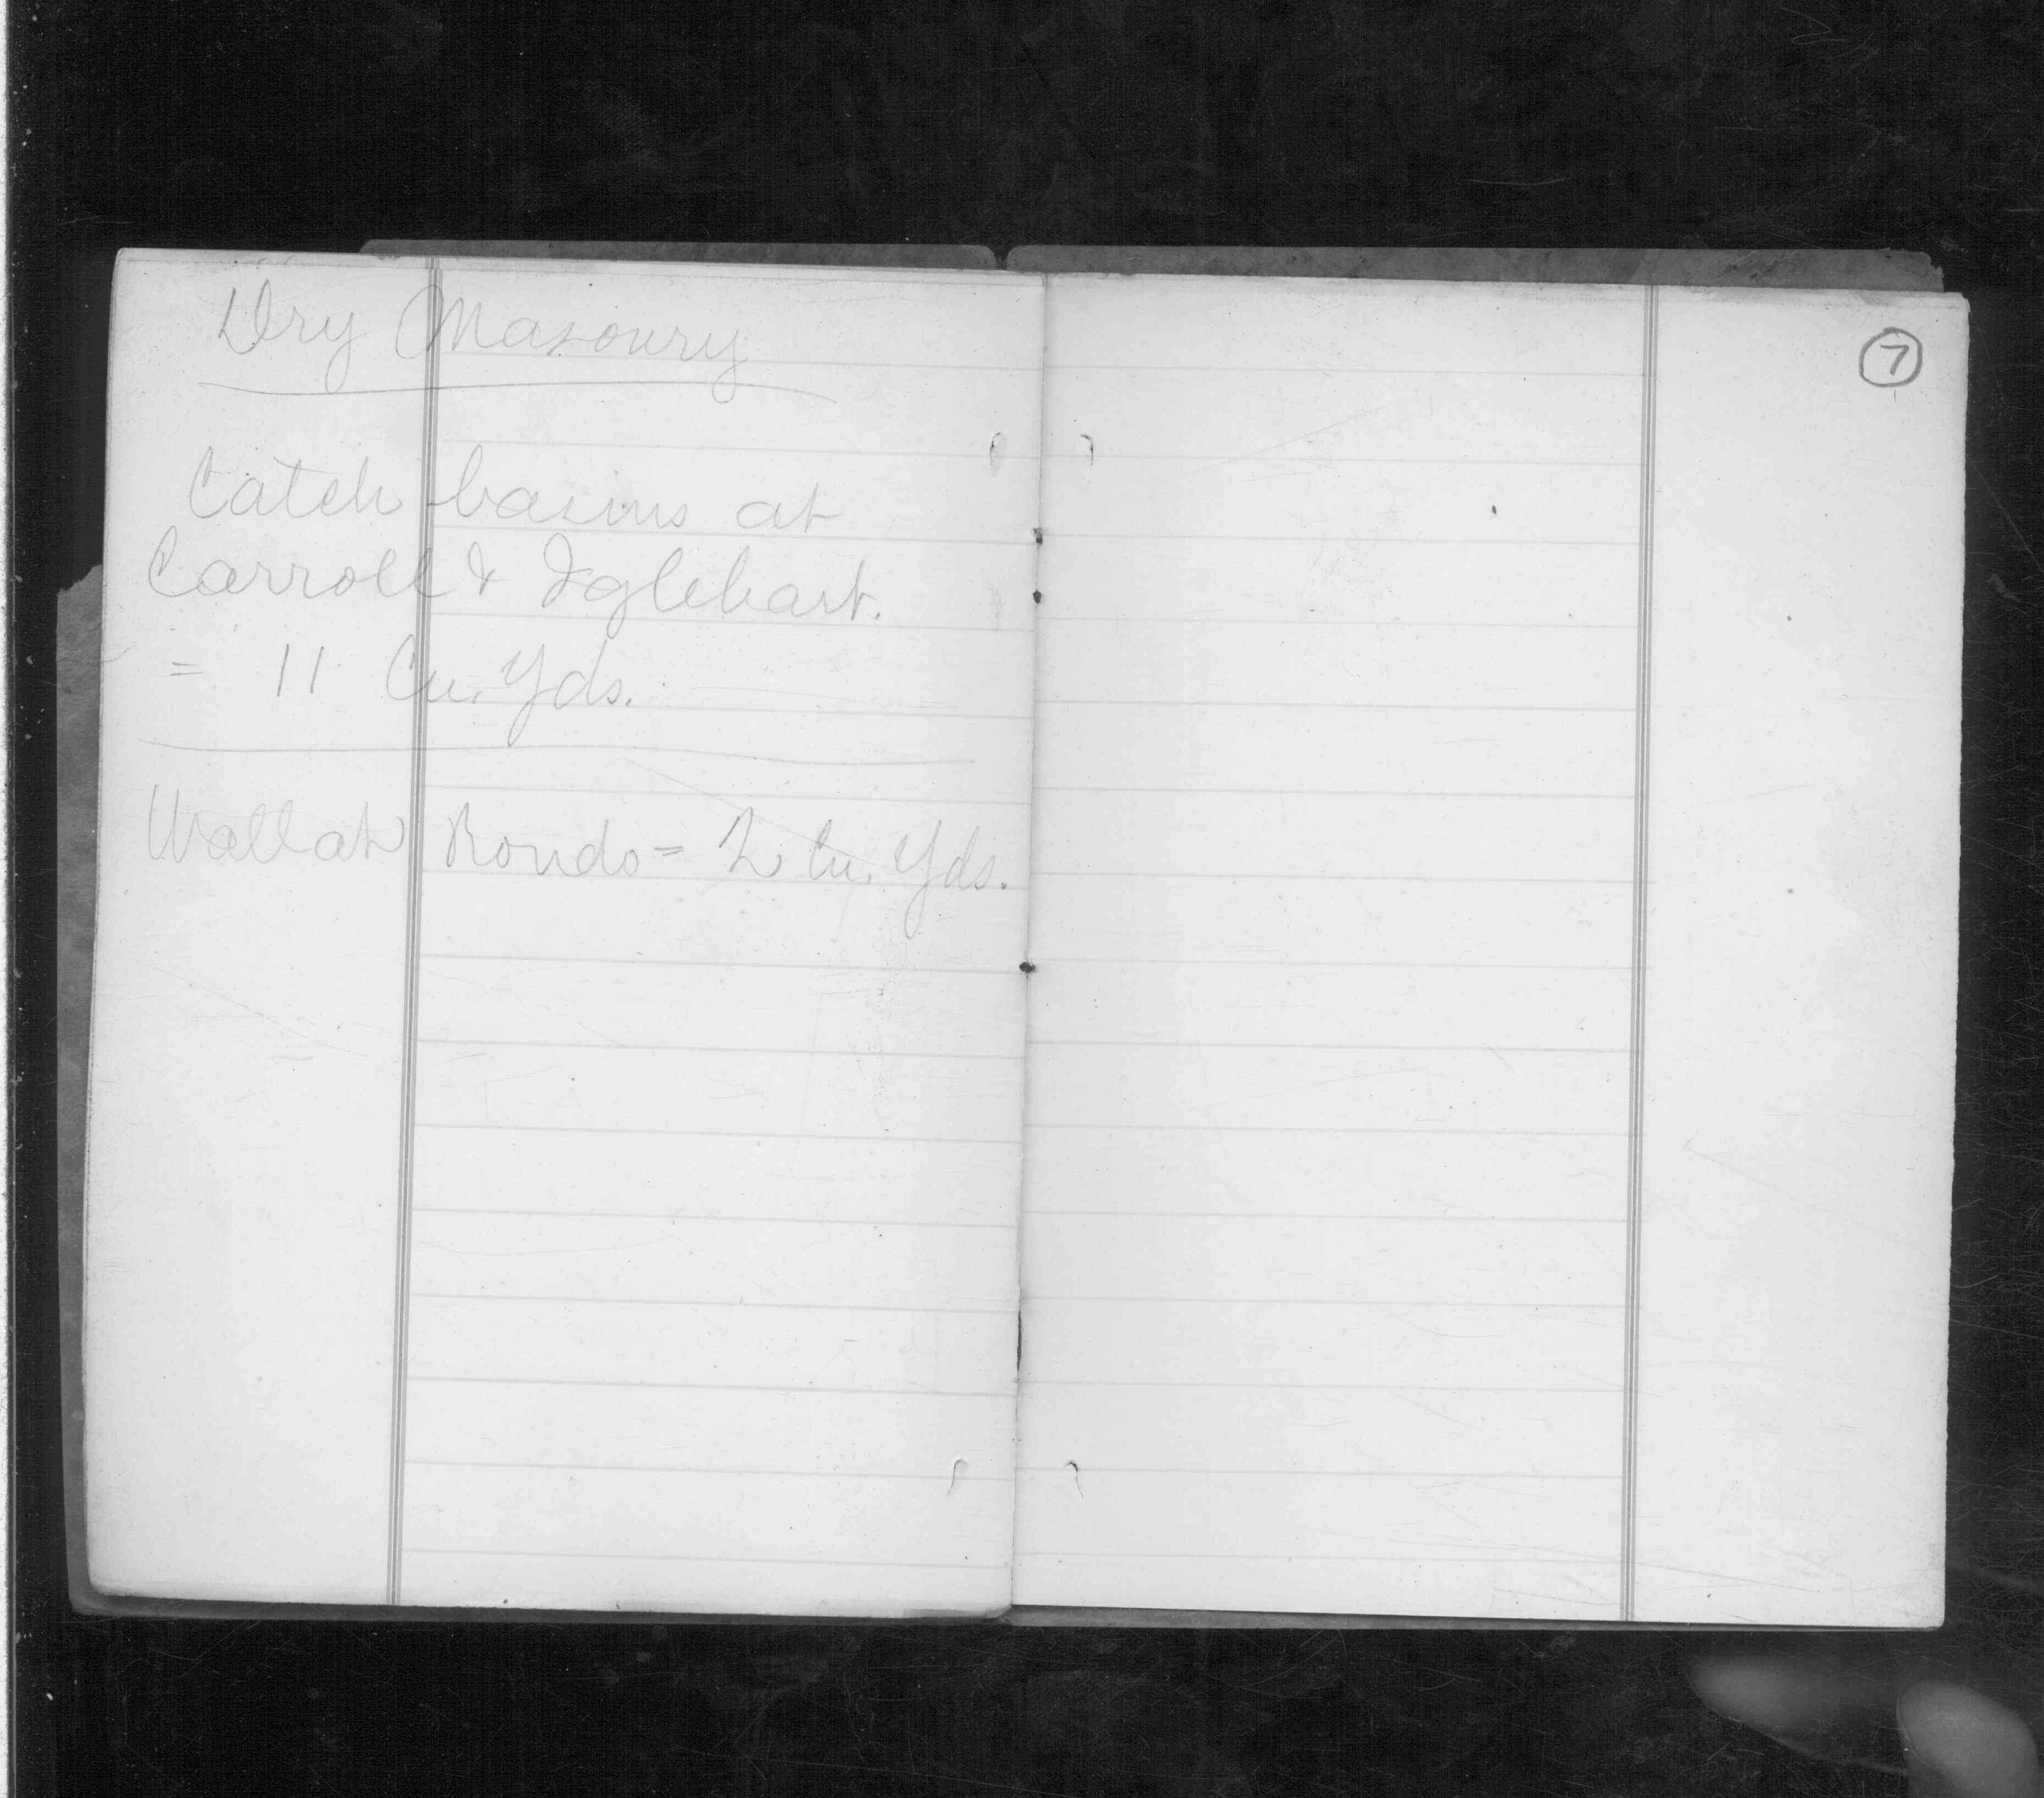 Dry Masonry
Catch basins at
Carroll & Iglehart.
= 11 Cu. Yds.
Wall at Rondo = 2 Cu. Yds.
7